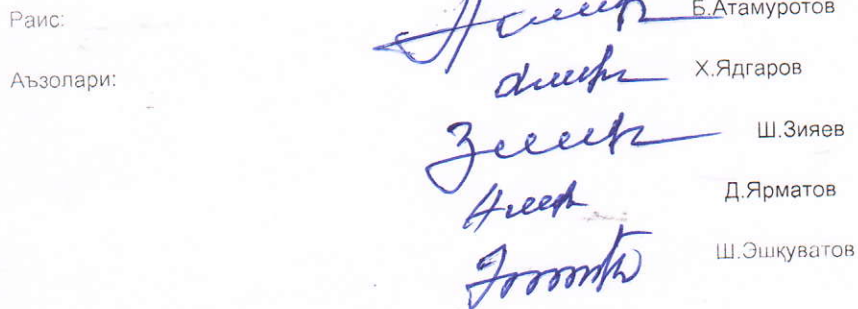 Раис: Б.Атамуротов
Аъзолари: Х.Ядгаров
Ш.Зияев
Д.Ярматов
Ш.Эшқуватов